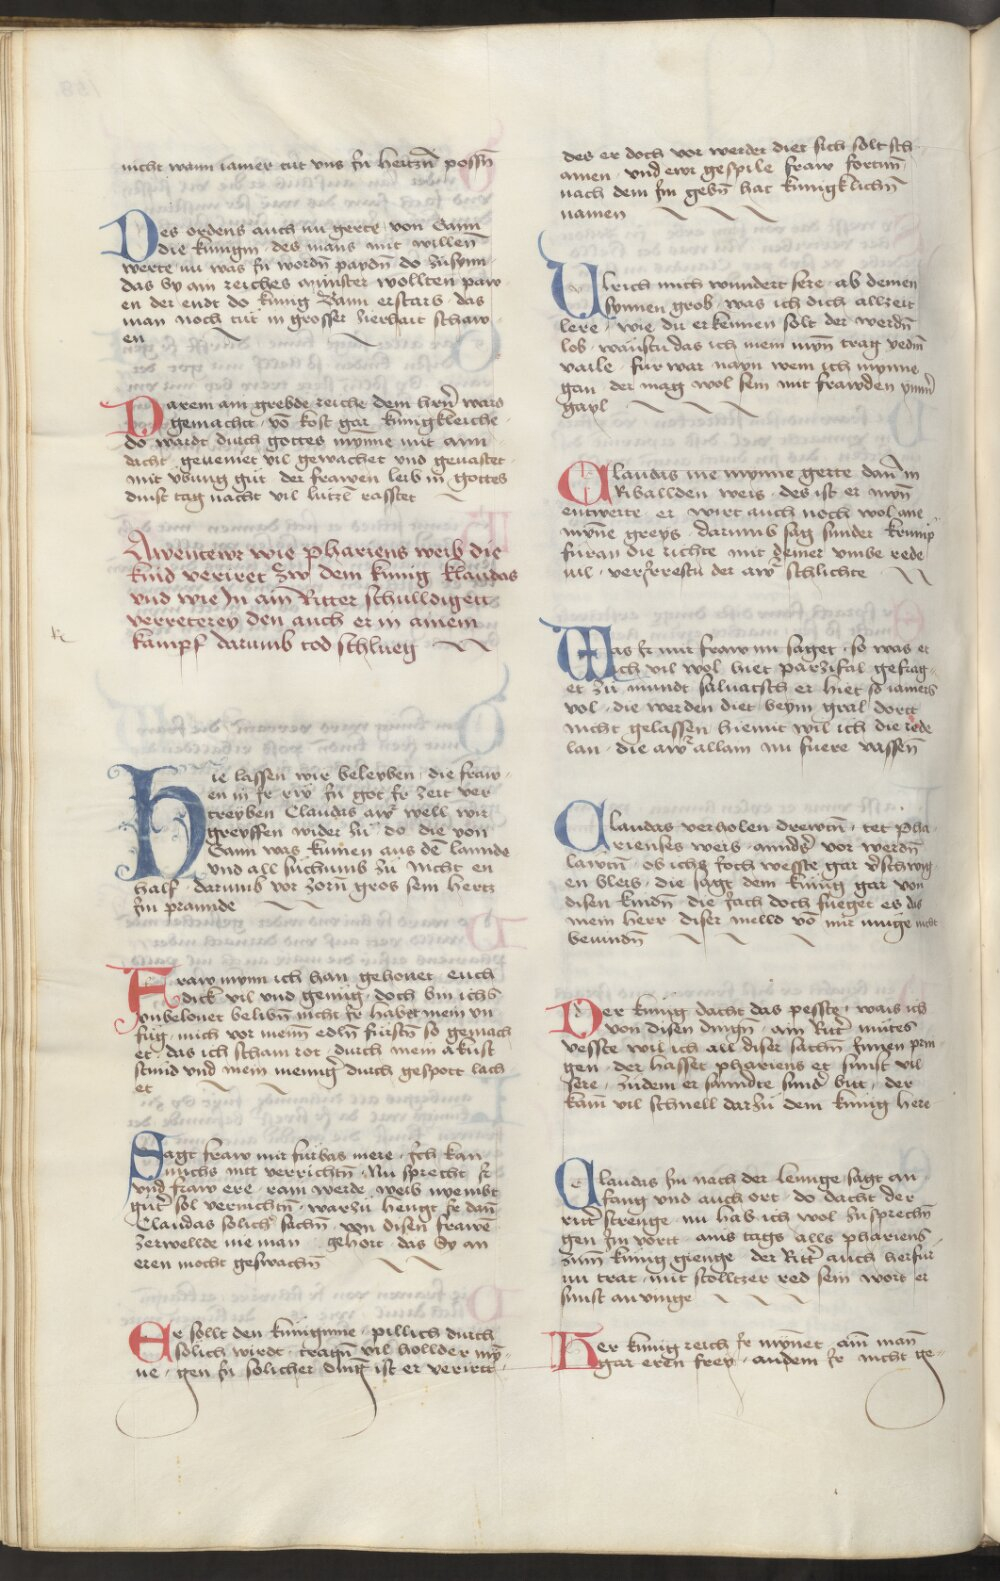 nicht wann iamer tut vns Jn hertzn̄ possn̄
Des ordens auch nu gerte von Gann
die kunigin · des mans mit willen
werte nu was Jn wordn̄ paydn̄ do zusynn
das by am reiches munster wollten paw
en der endt do kunig Bann erstarb · das
man noch tut in grosser zierhait schaw
en
Darem am grebde reiche dem hrn̄ ward
gemacht · vō kost gar kunigkleiche ·
do wardt durch gottes mynne mit ann
dacht geueniet vil gewachet vnd geuastet ·
mit vbung gut der frawen leib in gottes
dinst tag nacht vil lutzl rasstet
Awentewr wie Phariens weib die
kind verriet zw dem kunig Klaudas
vnd wie Jn ain Ritter schulldiget
verreterey den auch er in ainem
kampf darumb tod schlueg
Hie lassen wir beleyben · die fraw
en in Jr rw Jn got Jr zeit ver
treyben Claudas aw̄ well wir
greyffen wider zu do die von
Gann was kumen aus dē lannde
vnd all suchumb zu nicht en
half · darumb vor zorn̄ gros sein hertz
Jm prannde
Fraw mynn ich han gehouet euch
dick vil vnd genug · doch bin ichs
vnbelonet belibn̄ nicht Jr habet mein vn
fug · mich vor meinn̄ edln̄ furstn̄ so gemach
et · das ich scham rot durch mein akust
stund vnd mein menniḡ durch gespot lach
et
Sagt fraw mir furbas mere · Jch kan
michs mit verrichtn̄ · Nu sprecht Jr
vnd fraw ere · ram werde weib wembt
gut̄ sol vernichtn̄ · warzu hengt Jr dan̄
Claudas solich sachn̄ · von disen frawē
zerwellde nie man gehort · das Sy an
eren mocht geswachn̄
Er sollt den kuniginne · pillich durch
solich wirdt · tragn̄ vil hollder mȳ
ne · gen Jn solicher ding ist er verirtt ·
des er doch vor werder diet sich solt sch
amen · vnd ewr gespile fraw fortun̄
nach dem Jm gebn̄ hat kunigklichn̄
namen
Vlrich mich wundert sere · ab deinen
synnen grob · was ich dich allzeit
lere · wie du erkennen solt der werdn̄
lob · wanstu das ich mein myn̄ trag yedm̄
vaile · fur war nayn wem ich mynne
gan · der mag wol sein mit frawden ymm̄
gayl
Claudas nie mynne gerte dan̄ in
Riballden weis · des ist er myn̄
entwerte · er wirt auch noch wol ane
mȳne greys · darumb sag sunder krump
furan die richte mit deiner vmbe rede
vil · verJrrestu der aw̄r schlichte
Was Jr mir fraw nu saget · so was et
ich vil wol hiet parzifal gefrag
et zu mundt saluatsch er hiet so iamers
vol · die werden diet beym gral dort
nicht gelassen hiemit wil ich die rede
lan · die aw̄r allain nu fuere vassen̄
Claudas verholen drewtn̄ · tet Pha
rienses weib · annds̄ vor werdn̄
lawtn̄ · ob ichs Joch wesste gar v̄schwig
en bleib · die sagt dem kunig gar von
disen kindn̄ · die Jach doch fueget es das
mein herr diser melld vō mir muge nicht
beuindn̄
Der kunig dacht das pesste · wais ich
von disen dingn̄ · ain Ritt̄ mutes
vesste wil ich all diser sachn̄ Jnnen prin
gen · der hasset phariens et sunst vil
sere · zudem er sanndte sund̄ bit · der
kam̄ vil schnell darzu dem kunig here
Claudas Jm nach der lennge · sagt an
fang vnd auch ort · do dacht der
ritt̄ strenge · nu hab ich wol zusprechn̄
gen Jm vortt · ains tags alls phariens
zum̄ kunig gienge · der Ritt̄ auch herfur
nu trat · mit stolltzer red sein wort er
sunst anuinge
Her kunig reich Jr mȳnet · ain̄ man̄
gar eren frey · andem Jr nicht ge